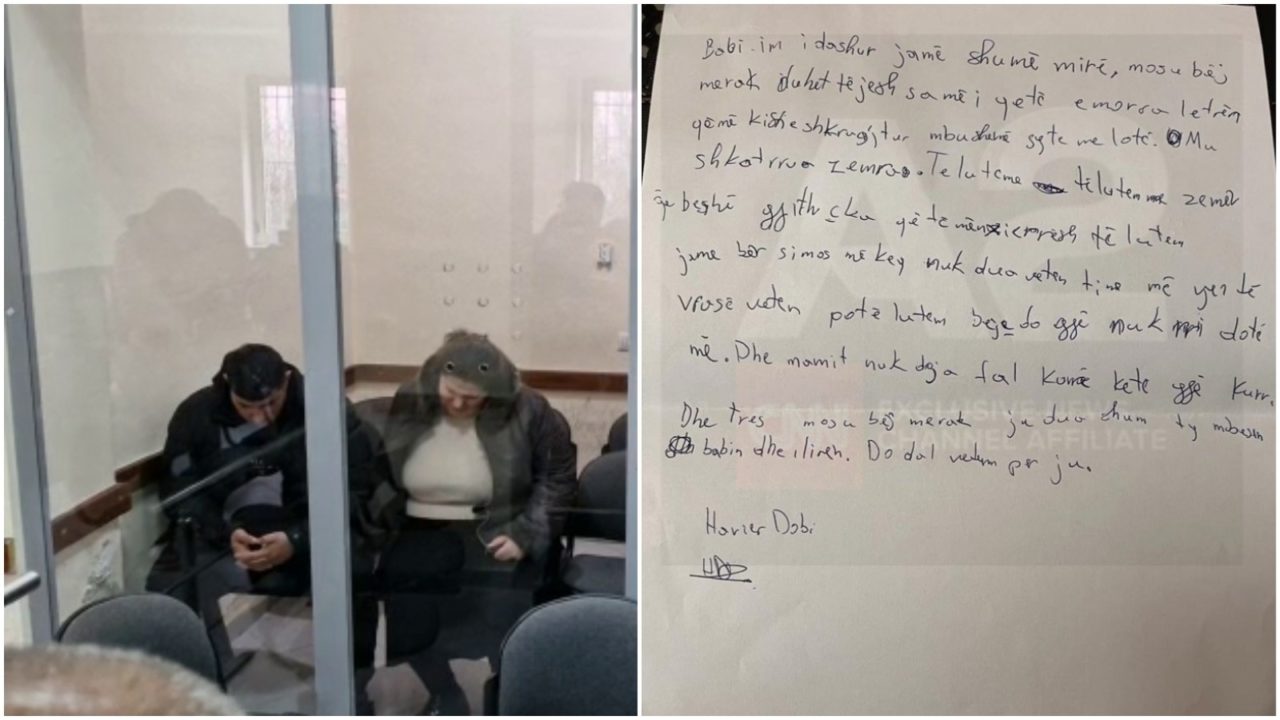 Babi im i dashur jamë shumë mirë, mosu bëj
merak duhet tëjesh sa më i qetë e morra letrën
që më kishe shkrugjtur mbushenë syte me lotë. Mu
shkatrrua zemra. Te luteme tëlutem zemër
bëgjithçka që të luten
jame bër si mos më keq nuk dua veten time më yer të
vrasë veten po të lutem do gjë nuk dotë
më. Dhe mamit nuk doja fal Kurrë kete gjë Kurr.
Dhe tres mosu bëj merak ju dua shum ty mbesen
babin dhe iliren. Do dal vetem per ju.
Havier Dobi
A2
EXCLUSIVE NEWS
CHANNEL AFFILIATE